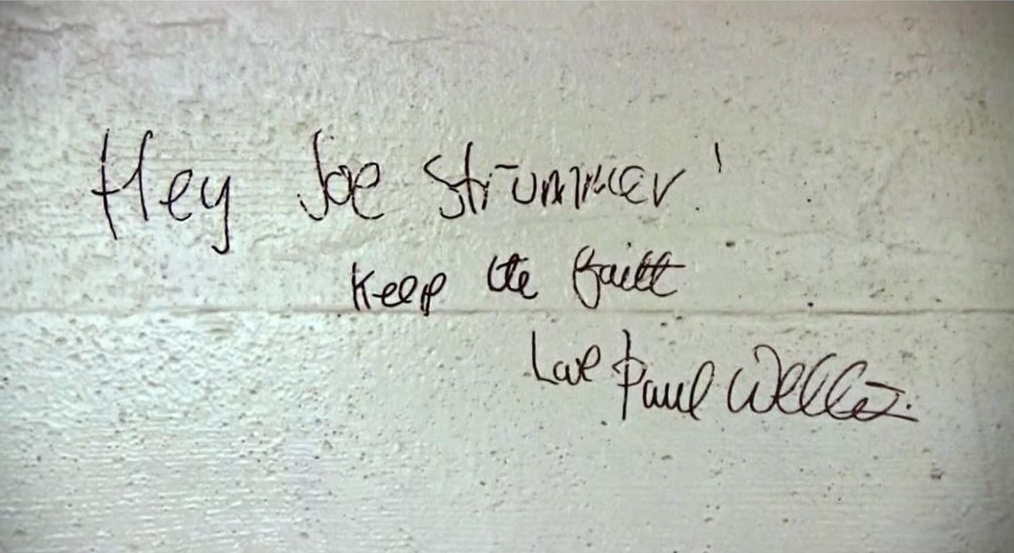 Hey Joe Strummer!
Keep the faith
Love Paul Weller.